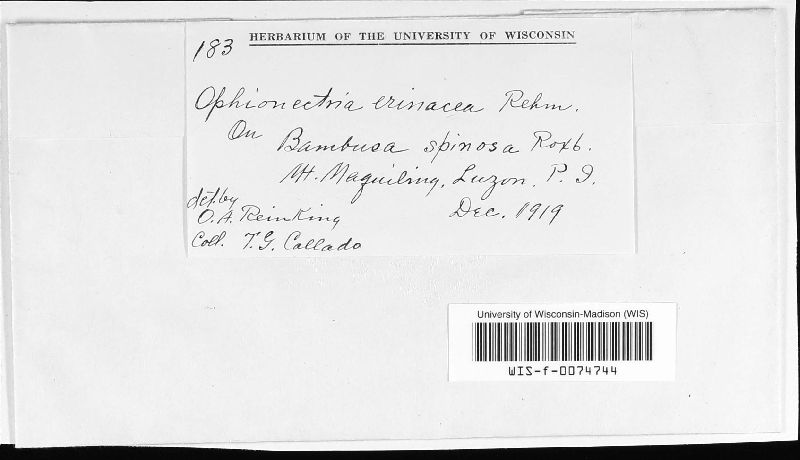 183 HERBARIUM OF THE UNIVERSITY OF WISCONSIN
Ophionectria erinacea Rehm.
On Bambusa spinosa Roxb.
Mt. Maquiling, Luzon, P. I.
det. by
O. A. Reinking Dec. 1919
Coll. T. G. Collado
University of Wisconsin-Madison (WIS)
WIS-f-0074744